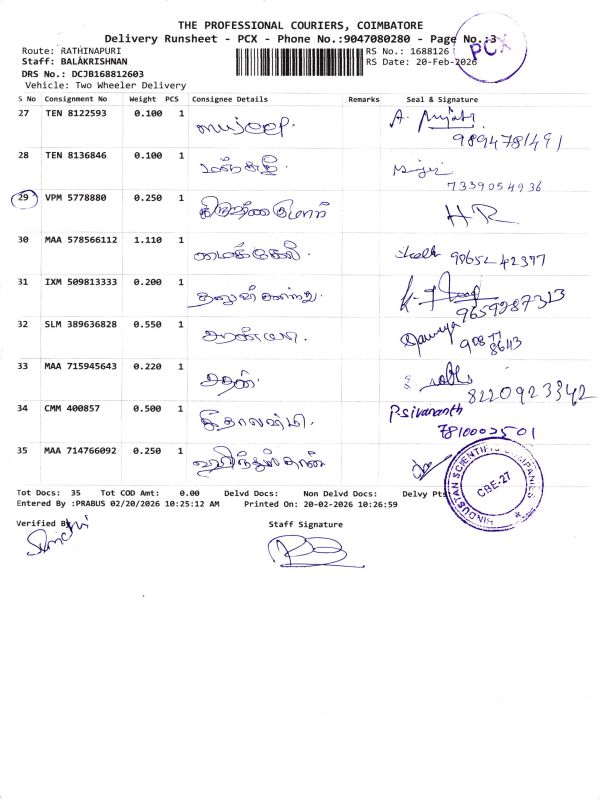 THE PROFESSIONAL COURIERS, COIMBATORE
Delivery Runsheet - PCX - Phone No.:9047080280 - Page No.:3
PCX
Route: RATHINAPURI
RS No.: 1688126
Staff: BALAKRISHNAN
RS Date: 20-Feb-2026
DRS No.: DCJB168812603
Vehicle: Two Wheeler Delivery
S No Consignment No Weight PCS Consignee Details Remarks Seal & Signature
27 TEN 8122593 0.100 1
9894781491
28 TEN 8136846 0.100 1
7339054936
29 VPM 5778880 0.250 1 HR
30 MAA 578566112 1.110 1 மைக்கேல் 98652 42377
31 IXM 509813333 0.200 1
9659287313
32 SLM 389636828 0.550 1
90877
8643
33 MAA 715945643 0.220 1
8220923342
34 CMM 400857 0.500 1 P.sivananth
7810002501
35 MAA 714766092 0.250 1
HINDUSTAN SCIENTIFIC COMPANIES
CBE-27
Tot Docs: 35 Tot COD Amt: 0.00 Delvd Docs: Non Delvd Docs: Delvy Pts
Entered By :PRABUS 02/20/2026 10:25:12 AM Printed On: 20-02-2026 10:26:59
Verified By
Staff Signature